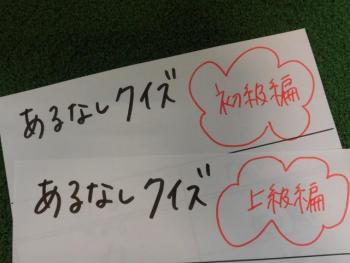 あるなしクイズ 初級編
あるなしクイズ 上級編